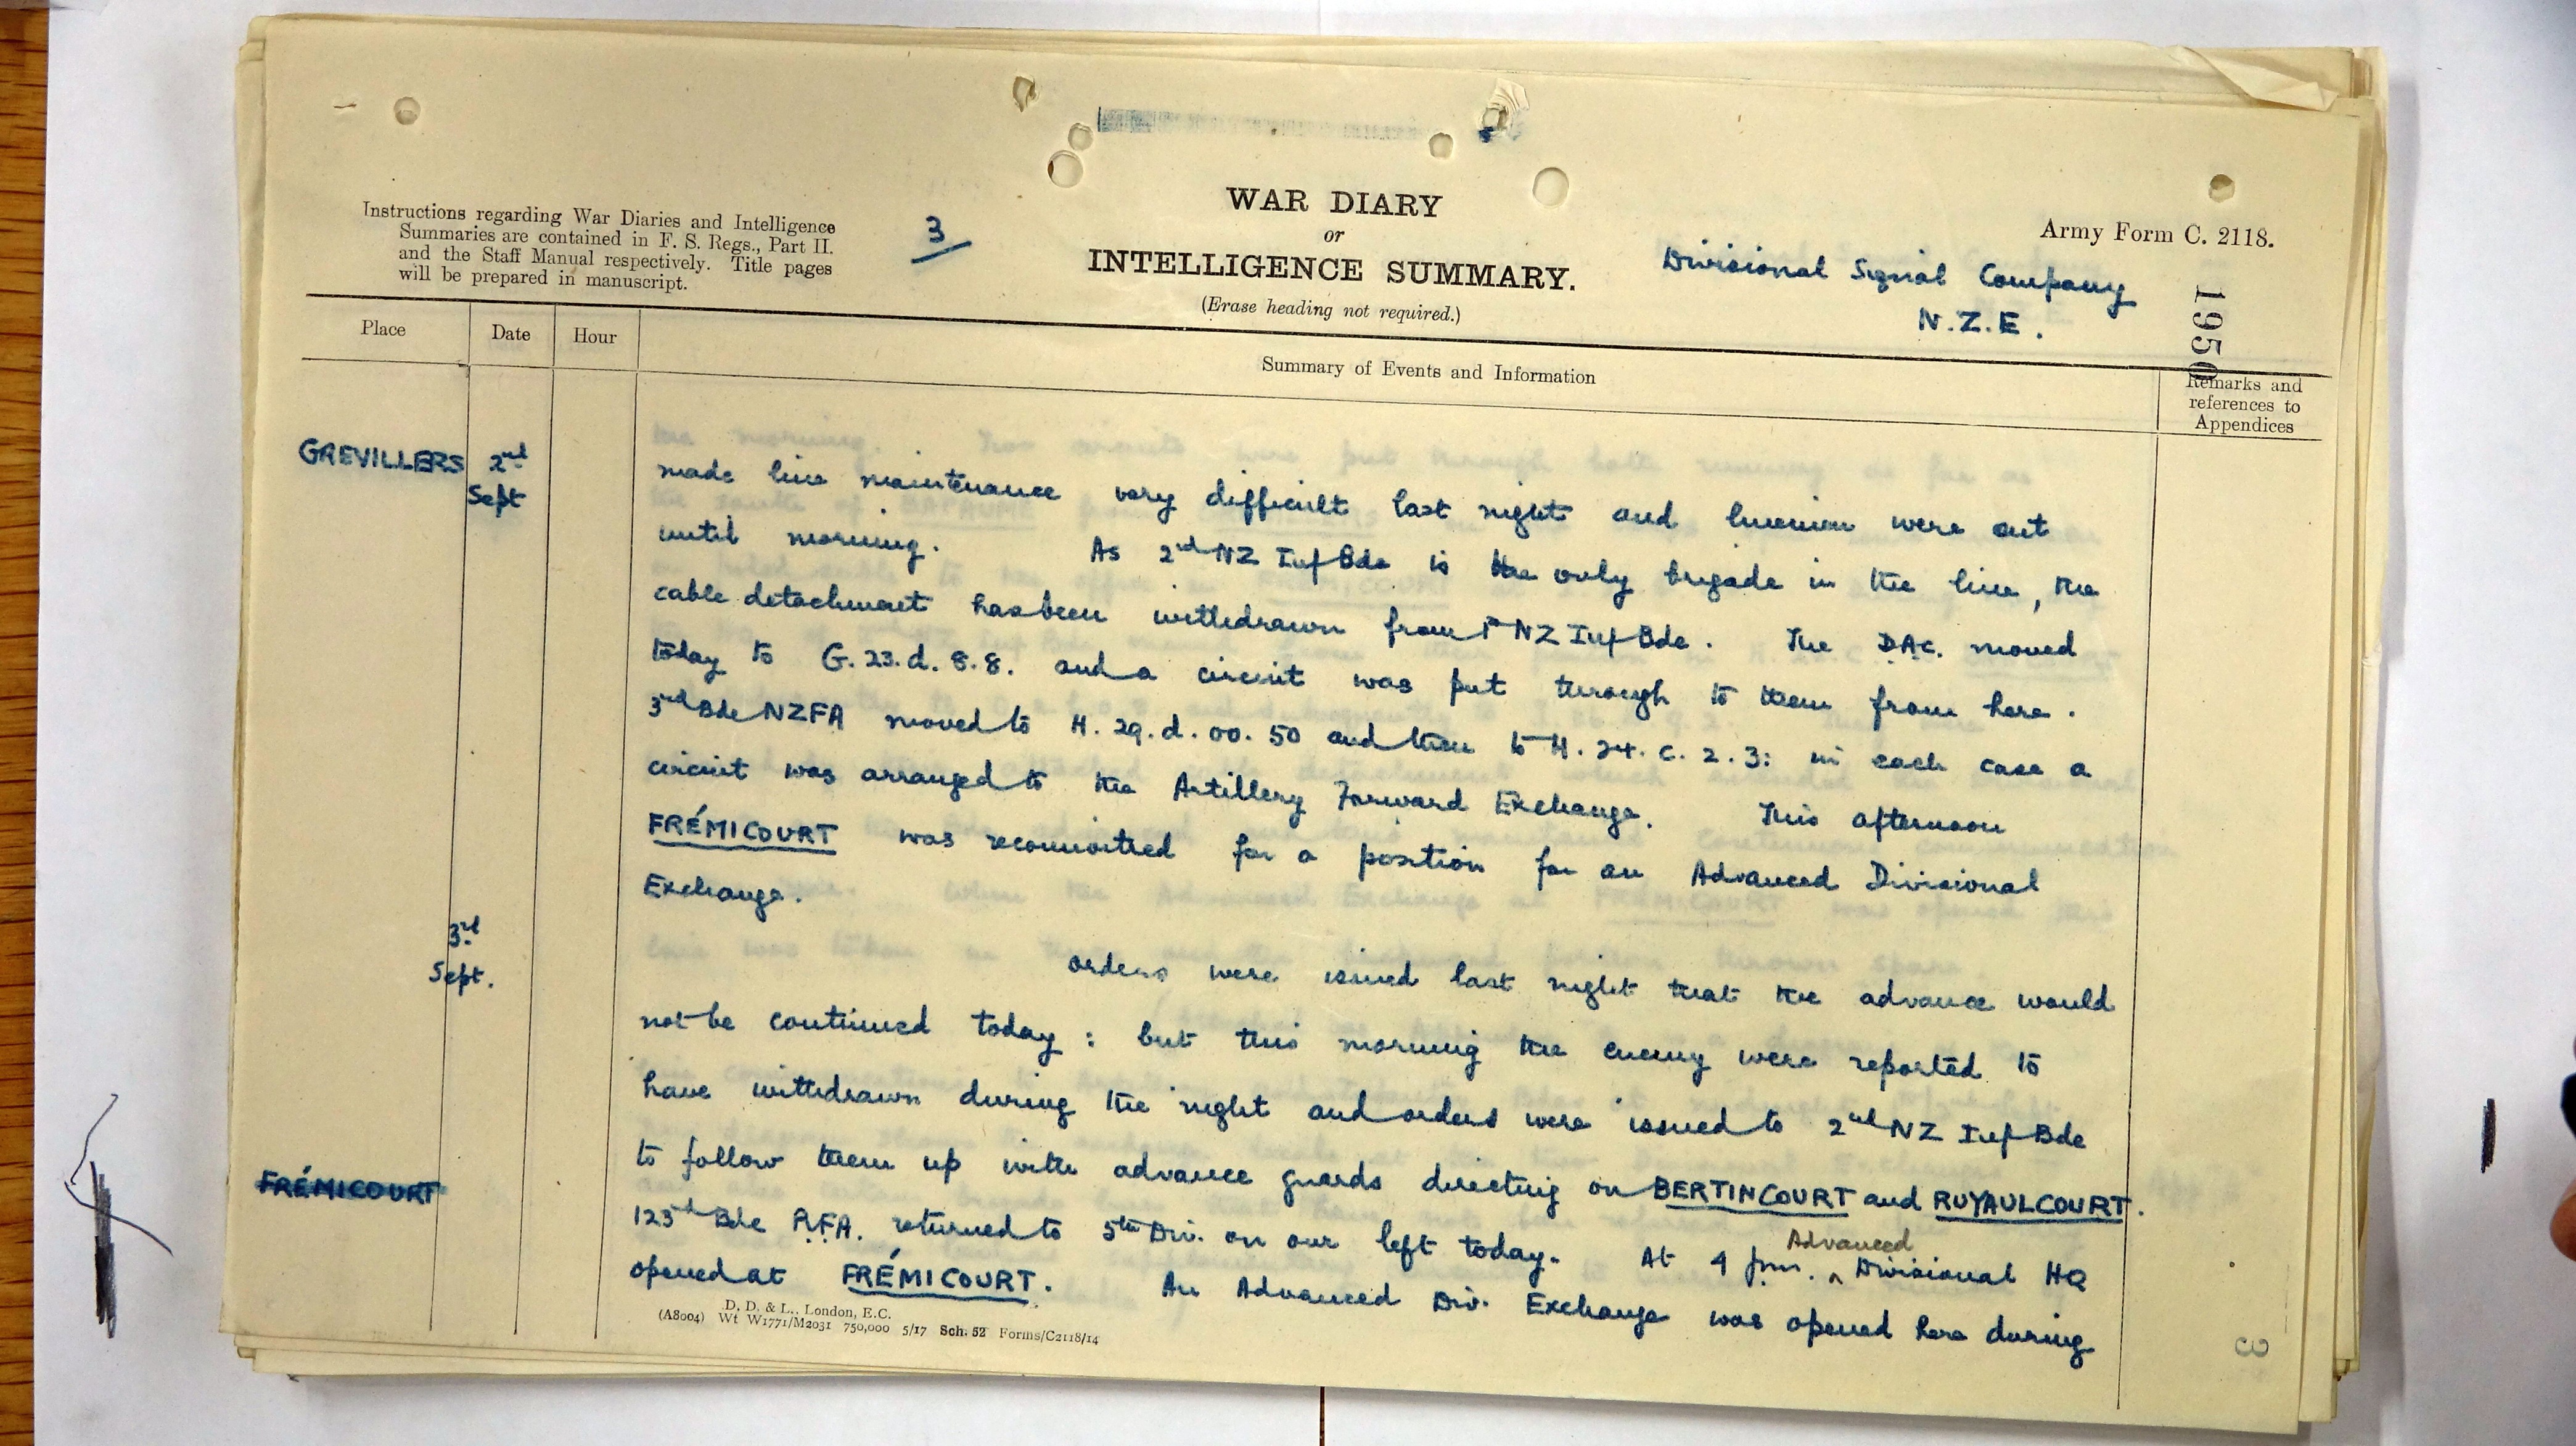 Instructions regarding War Diaries and Intelligence
Summaries are contained in F. S. Regs., Part II.
and the Staff Manual respectively. Title pages
will be prepared in manuscript.
3
WAR DIARY
or
INTELLIGENCE SUMMARY.
(Erase heading not required.)
Army Form C. 2118.
Divisional Signal Company
N.Z.E.
1950
Place
Date
Hour
Summary of Events and Information
Remarks and
references to
Appendices
GREVILLERS 2nd
Sept
made line maintenance very difficult last night and linemen were out
until morning. As 2nd NZ Inf Bde is the only brigade in the line, the
cable detachment has been withdrawn from 1st NZ Inf Bde. The D.A.C. moved
today to G.23.d.8.8. and a circuit was put through to them from here.
3rd Bde NZFA moved to H.29.d.00.50 and then to H.24.c.2.3: in each case a
circuit was arranged to the Artillery Forward Exchange. This afternoon
FRÉMICOURT was reconnoitred for a position for an Advanced Divisional
Exchange.
3rd
Sept.
orders were issued last night that the advance would
not be continued today: but this morning the enemy were reported to
have withdrawn during the night and orders were issued to 2nd NZ Inf Bde
to follow them up with advance guards directing on BERTINCOURT and RUYAULCOURT.
FRÉMICOURT
123rd Bde R.F.A. returned to 5th Div. on our left today. At 4 p.m. ^ Advanced Divisional HQ
opened at FRÉMICOURT. An Advanced Div. Exchange was opened here during
(A8004) D. D. & L., London, E.C.
Wt W1771/M2031 750,000 5/17 Sch. 52 Forms/C2118/14
3